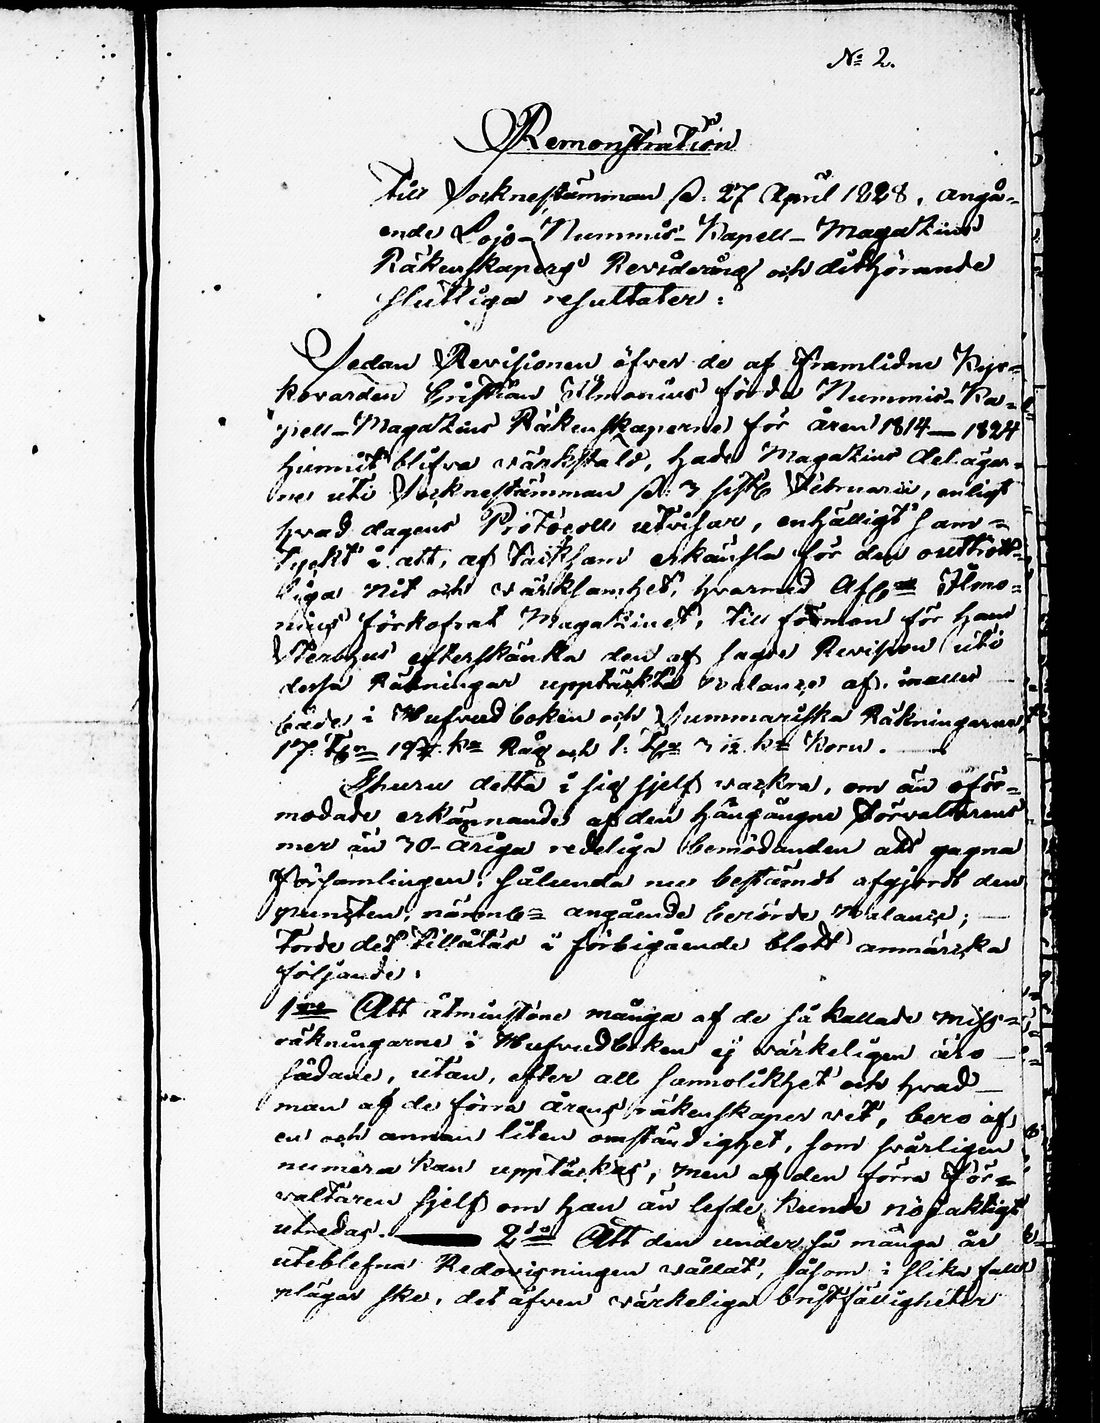 № 2.
Remonstration
Till Socknestämman d. 27 April 1828, angå-
ende Lojo-Nummis-Kapell-Magazins
Räkenskapers Revidering och dithörande
slutliga resultater:
Sedan Revisionen öfver de af framlidne Kyr-
kovärden Christian Ilmonius förda Nummis-Ka-
pell-Magazins Räkenskaperne för åren 1814—1824
hunnit blifva värkstäld, hade Magazins Delägar-
ne uti Socknestämman d. 3 sistl. Februarii, enligt
hvad dagens Protocoll utvisar, enhälligt sam-
tyckt i att, af tacksam erkänsla för den outtrött-
liga nit och värksamhet, hvarmed Afl. Ilmo-
nius förkofrat Magazinet, till förmon för hans
Sterbhus efterskänka den af sagde Revision uti
dessa Räkningar upptäckta Balance af inalles
både i Hufvudboken och Summariska Räkningarne
17. T:r 19 k:r Råg och 1. T:a 3 k:r Korn.
Ehuru detta i sig sjelf vackra, om än oför-
modade erkännande af den hängångne Förvaltarens
mer än 30-åriga redeliga bemödanden att gagna
Församlingen, sålunda nu bestämdt afgjordt den
puncten, nämnl. angående berörde Balance;
torde det tillåtas i förbigående blott anmärcka
följande:
1mo Att åtminstone många af de så kallade miss-
räkningarne i Hufvudboken ej värkeligen äro
sådane, utan, efter all sannolikhet och hvad
man af de förra årens räkenskaper vet, bero af
en och annan liten omständighet, som svårligen
numera kan upptäckas, men af den förra För-
valtaren sjelf om han än lefde kunde nöjaktigt
utredas. — 2do Att den under så många år
uteblefna Redovisningen vållat, såsom i slika fall
plägar ske, det äfven värkeliga bristfälligheter